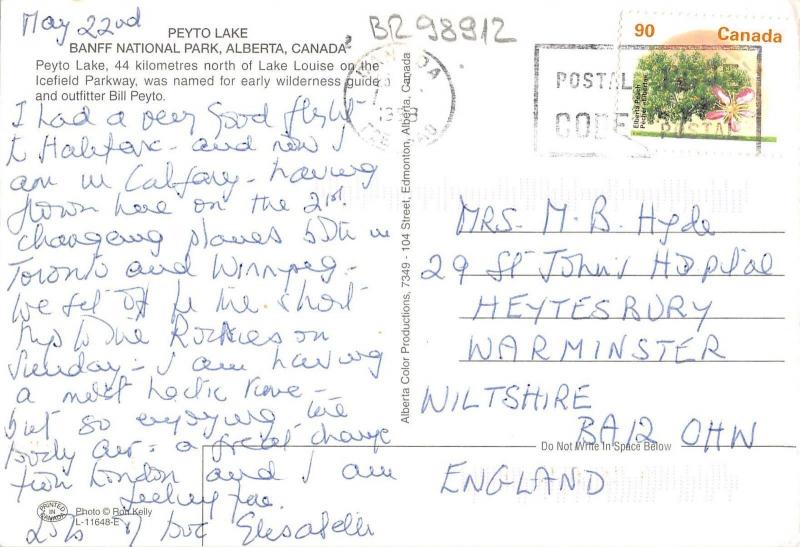 May 22nd
BR98912
PEYTO LAKE
BANFF NATIONAL PARK, ALBERTA, CANADA
Peyto Lake, 44 kilometres north of Lake Louise on the
Icefield Parkway, was named for early wilderness guide
and outfitter Bill Peyto.
I had a very good flight
to Halifax - and now I
am in Calgary - having
flown here on the 21st.
changing planes both in
Toronto and Winnipeg -
We set off for the short
trip to the Rockies on
Sunday - I am having
a most hectic time -
but so enjoying the
body air - a great change
from London and I am
feeling fine.
Lots of love Elisabeth
PRINTED IN CANADA
Photo © Ron Kelly
L-11648-E
Alberta Color Productions, 7349 - 104 Street, Edmonton, Alberta, Canada
90 Canada
Elberta Peach
POSTAL
CODE
POSTAL
MRS. M. B. Hyde
29 St John's Hospital
HEYTESBURY
WARMINSTER
WILTSHIRE
BA12 0HW
Do Not Write In Space Below
ENGLAND